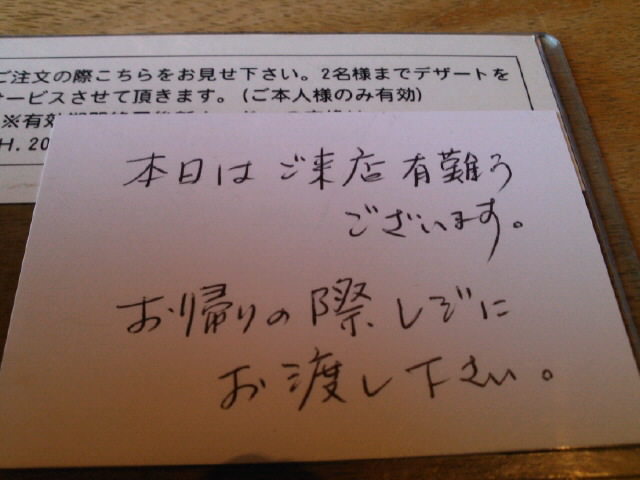 ご注文の際こちらをお見せ下さい。2名様までデザートを
サービスさせて頂きます。(ご本人様のみ有効)
※有効期間
H. 20
本日はご来店有難う
ございます。
お帰りの際、レジに
お渡し下さい。